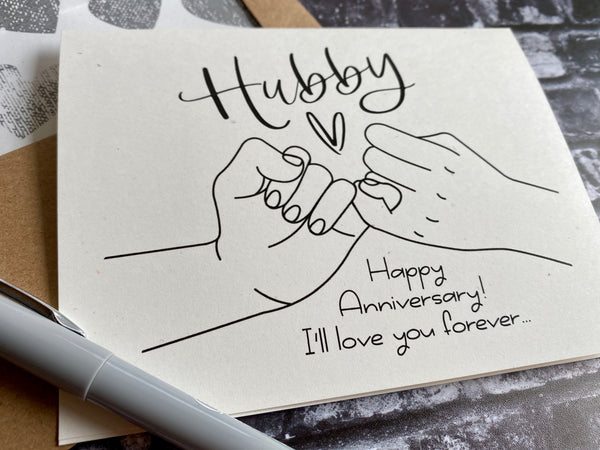 Hubby
Happy
Anniversary!
I'll love you forever...